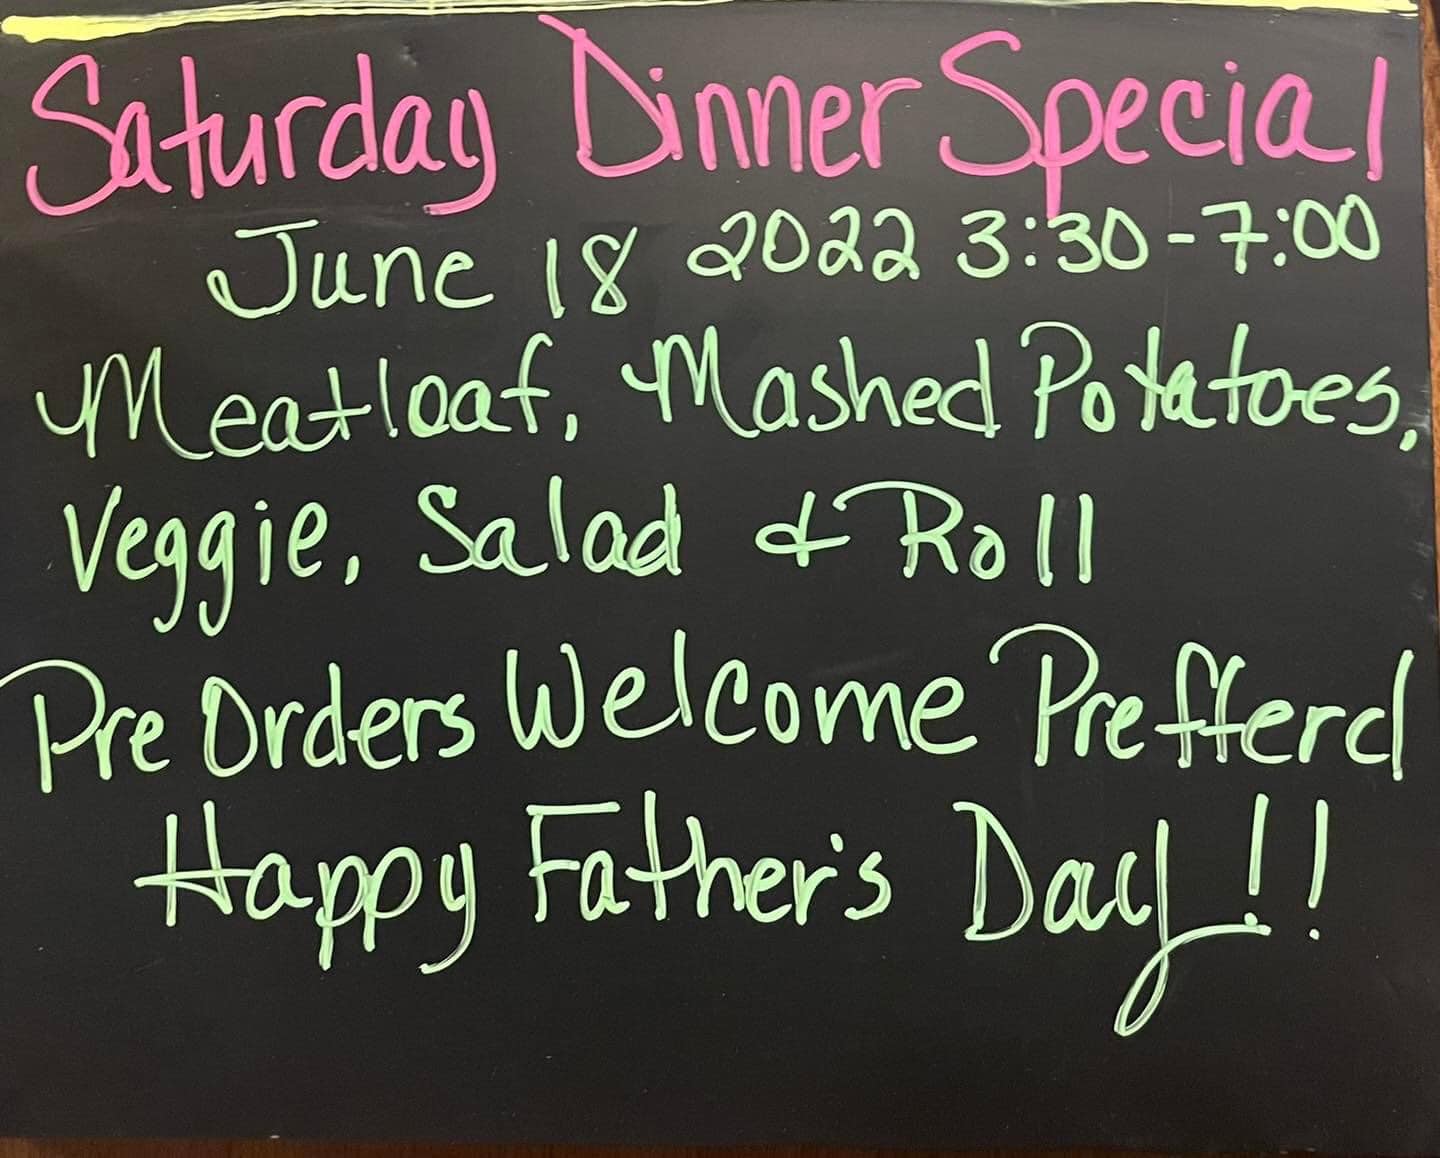 Saturday Dinner Special
June 18 2022 3:30-7:00
Meatloaf, Mashed Potatoes,
Veggie, Salad & Roll
Pre Orders Welcome Prefferd
Happy Father's Day!!